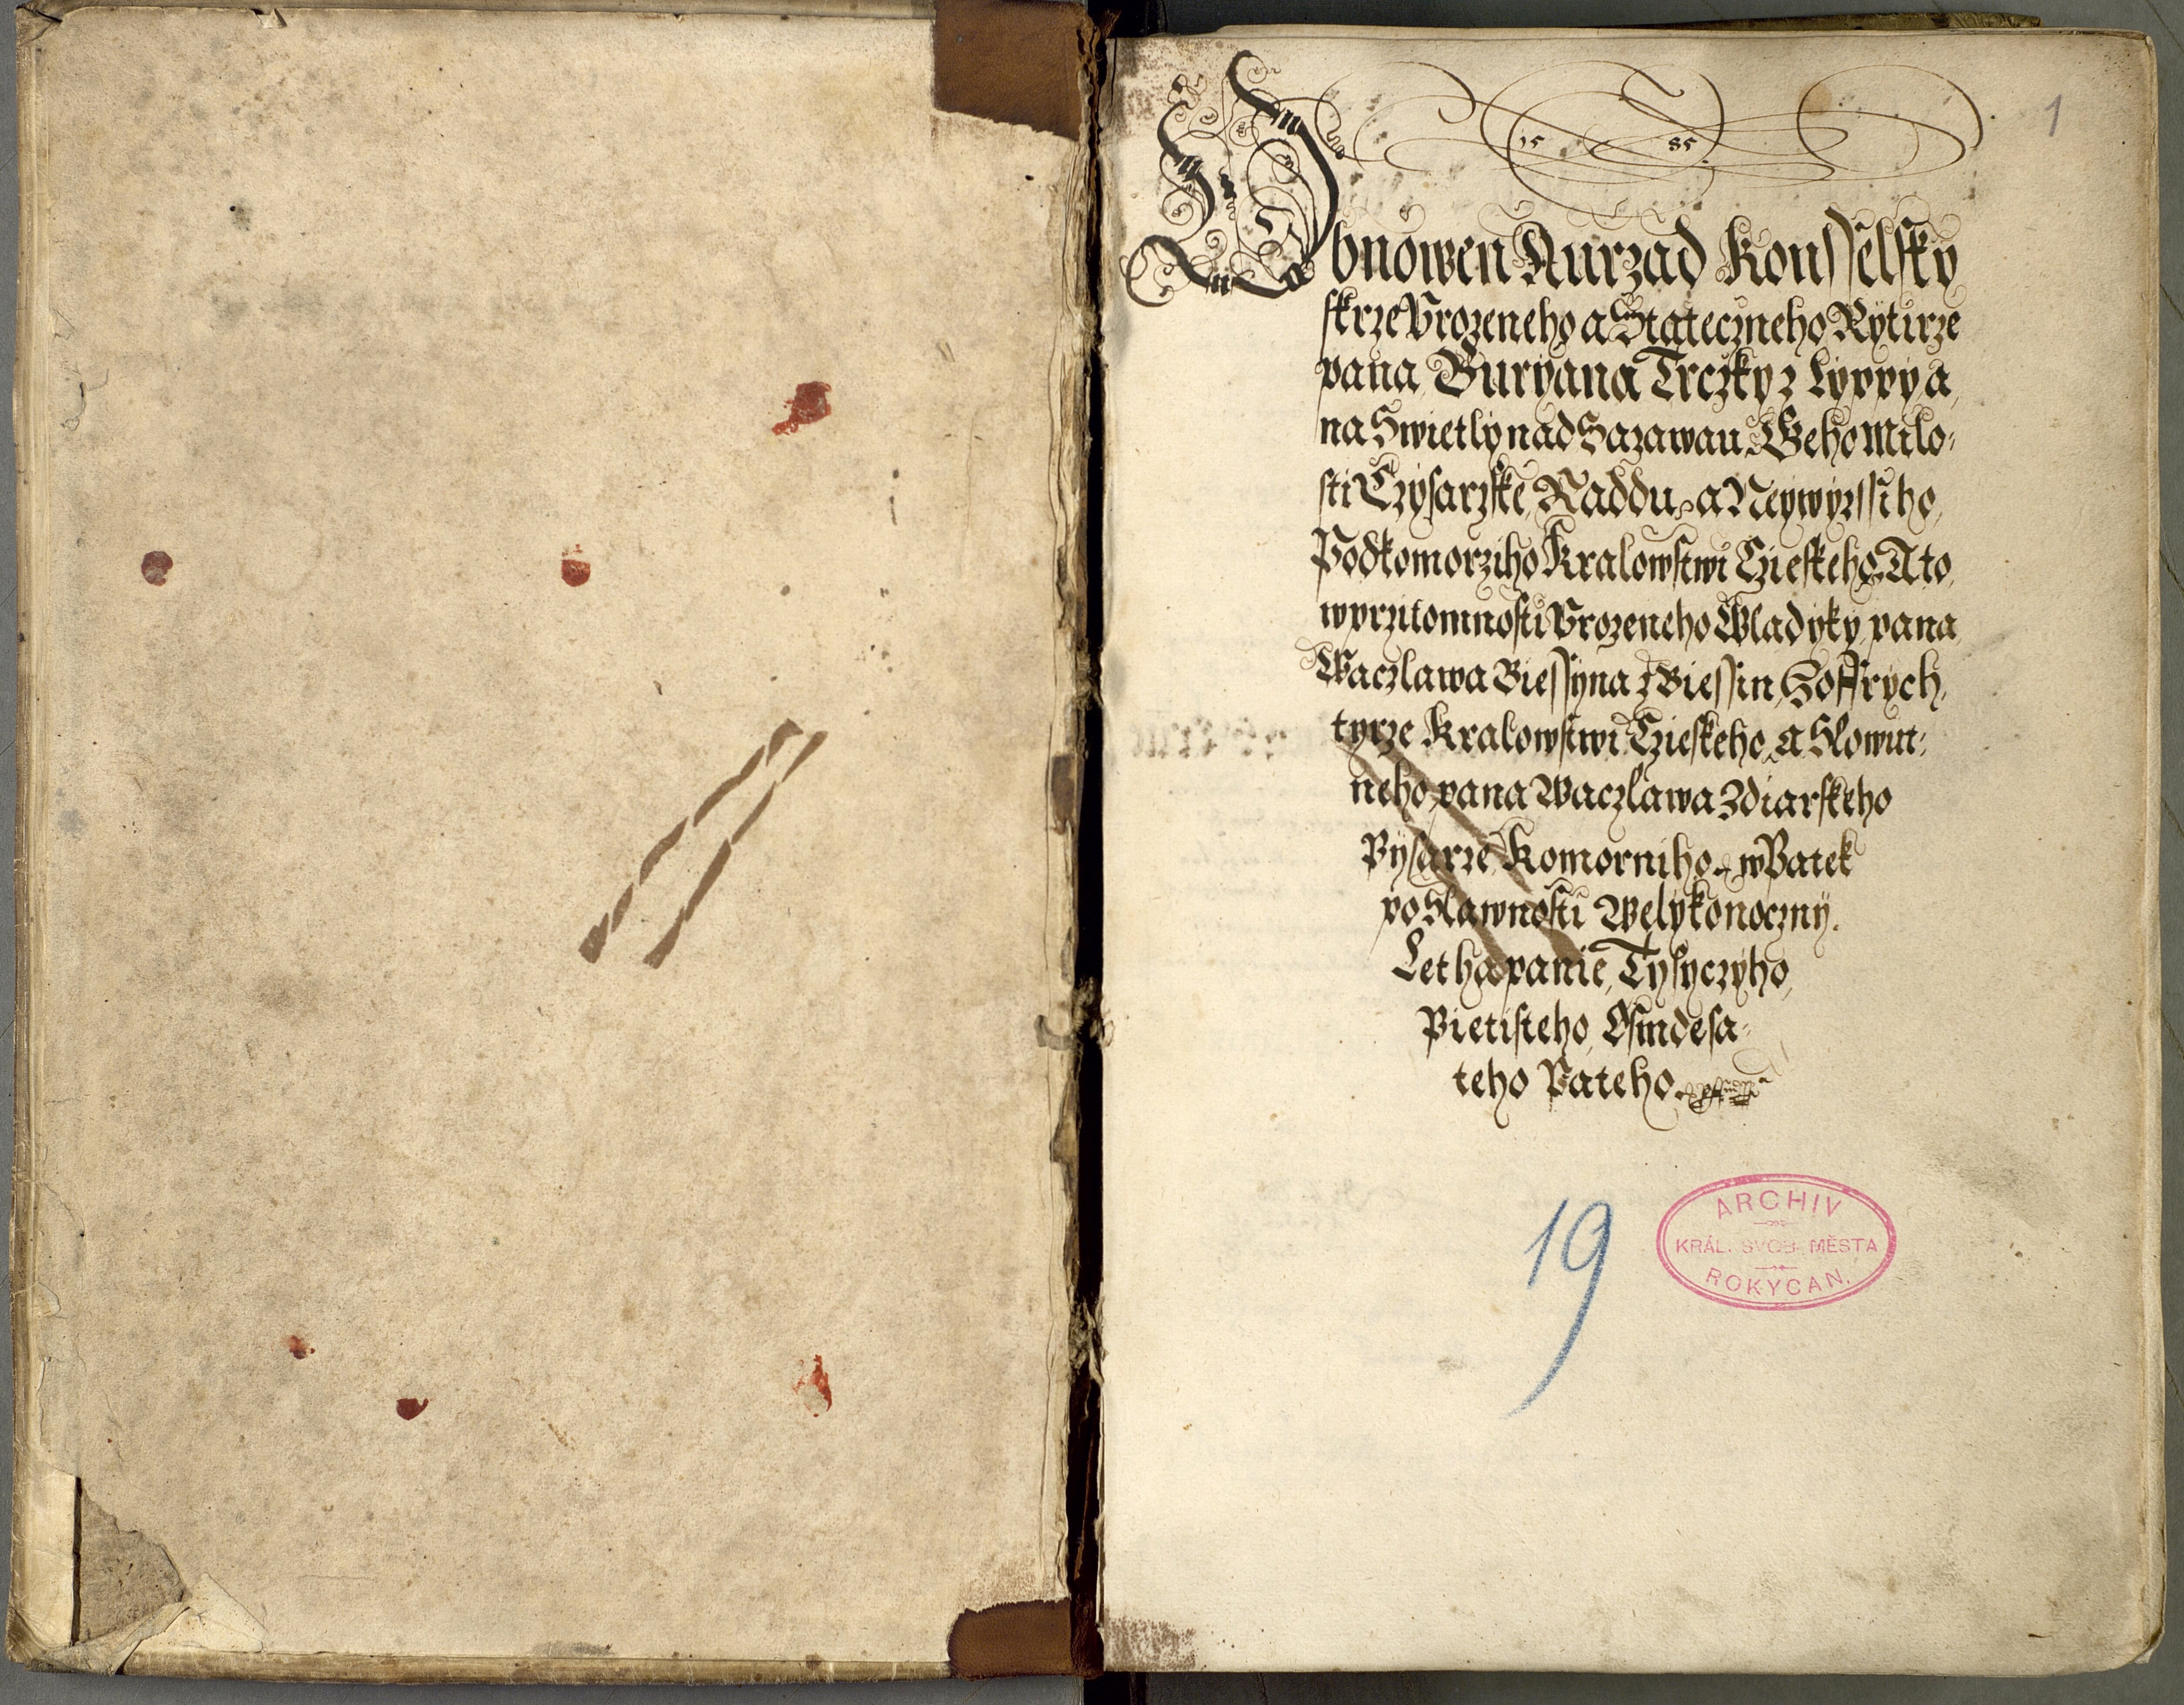 1
15 85
Obnowen Aurzad Konsselsky
skrze Vrozeneho a Stateczneho Rytirze
pana Buryana Trczky z Lyppy a
na Swietly nad Sazawau Geho Milo-
sti Czysarzske Raddu a Neywyzssiho
Podkomorziho Kralowstwi Czieskeho A to
w przitomnosti Vrozeneho Wladyky pana
Waczlawa Biessyna z Biessin Hoffrych-
tyrze Kralowstwi Czieskeho a Slowut-
neho pana Waczlawa Zdiarskeho
Pysarze Komorniho w Patek
po Slawnosti Welykonoczny.
Letha panie Tysyczyho
Pietisteho Osmdesa-
teho Pateho.
19
ARCHIV
KRÁL. SVOB. MĚSTA
ROKYCAN.